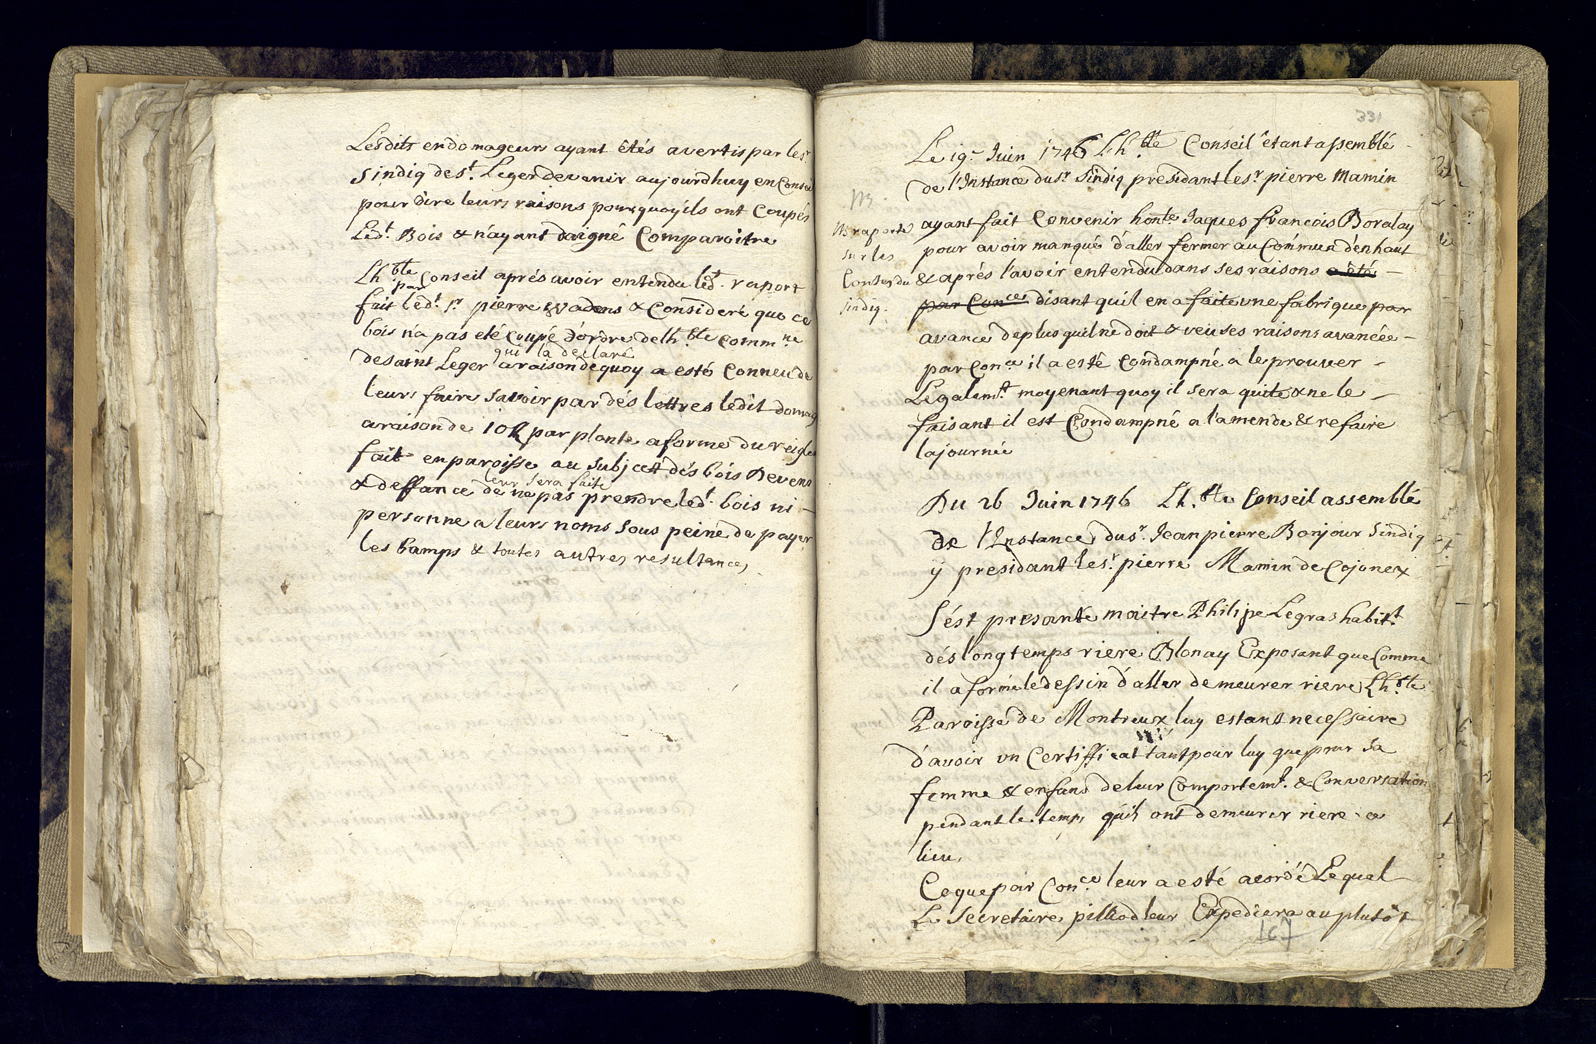 Lesdits endomageurs ayant étés avertis par les
sindiq de st. Leger de venir aujourdhuy en Conseil
pour dire leurs raisons pourquoy ils ont Coupés
Ledt. Bois & n'ayant daigné Comparoitre
Lhble Conseil aprés avoir entendu led.t raport
fait par led.t sr. pierre & Consideré que ce
bois n'a pas eté Coupé d'ordre de lh.ble Comm.ne
qui la declaré
de saint Leger a raison de quoy a esté Conneu de
leurs faire savoir par des lettres ledit domag
a raison de 10 par plante a forme du reigle
fait en paroisse au subject dés bois Devens
leur sera faite
& deffance de ne pas prendre led.t bois ni
personne a leurs noms sous peine de payer
les bamps & toutes autres resultances
331
Le 19e Juin 1746 Lh.ble Conseil étant assemblé
de l'Instance du sr. Sindiq présidant le sr. pierre Mamin
ayant fait Convenir honle Jaques françois Boralay
pour avoir manqué d'aller fermer au Commun d'enhaut
& aprés l'avoir entendu dans ses raisons a été
par Conce disant qu'il en a faite une fabrique par
avance de plus quil ne doit & veu ses raisons avancée
par Con.ce il a esté Condampné a le prouver
Legalemt. moyenant quoy il sera quite & ne le
faisant il est Condampné a l'amende & refaire
la journée
raporte
sur les
sindiq.
Du 26 Juin 1746 Lh.ble Conseil assemblé
de l'Instance du sr. Jean pierre Bonjour Sindiq
ÿ présidant le sr. pierre Mamin de Cojonex
S'ést presanté maitre Philipe Legras habitt.
dés longtemps riere Blonay Exposant que Comme
il a formé le dessin d'aller demeurer riere Lh.ble
Paroisse de Montreux luy estant necessaire
d'avoir un Certifficat tant pour luy que pour sa
femme & enfans de leur Comportemt. & Conversation
pendant le temps qu'ils ont demeurer riere ce
lieu,
Ce que par Conce leur a esté acordé Lequel
Le Secretaire pilliod leur Expediera au plutôt
167